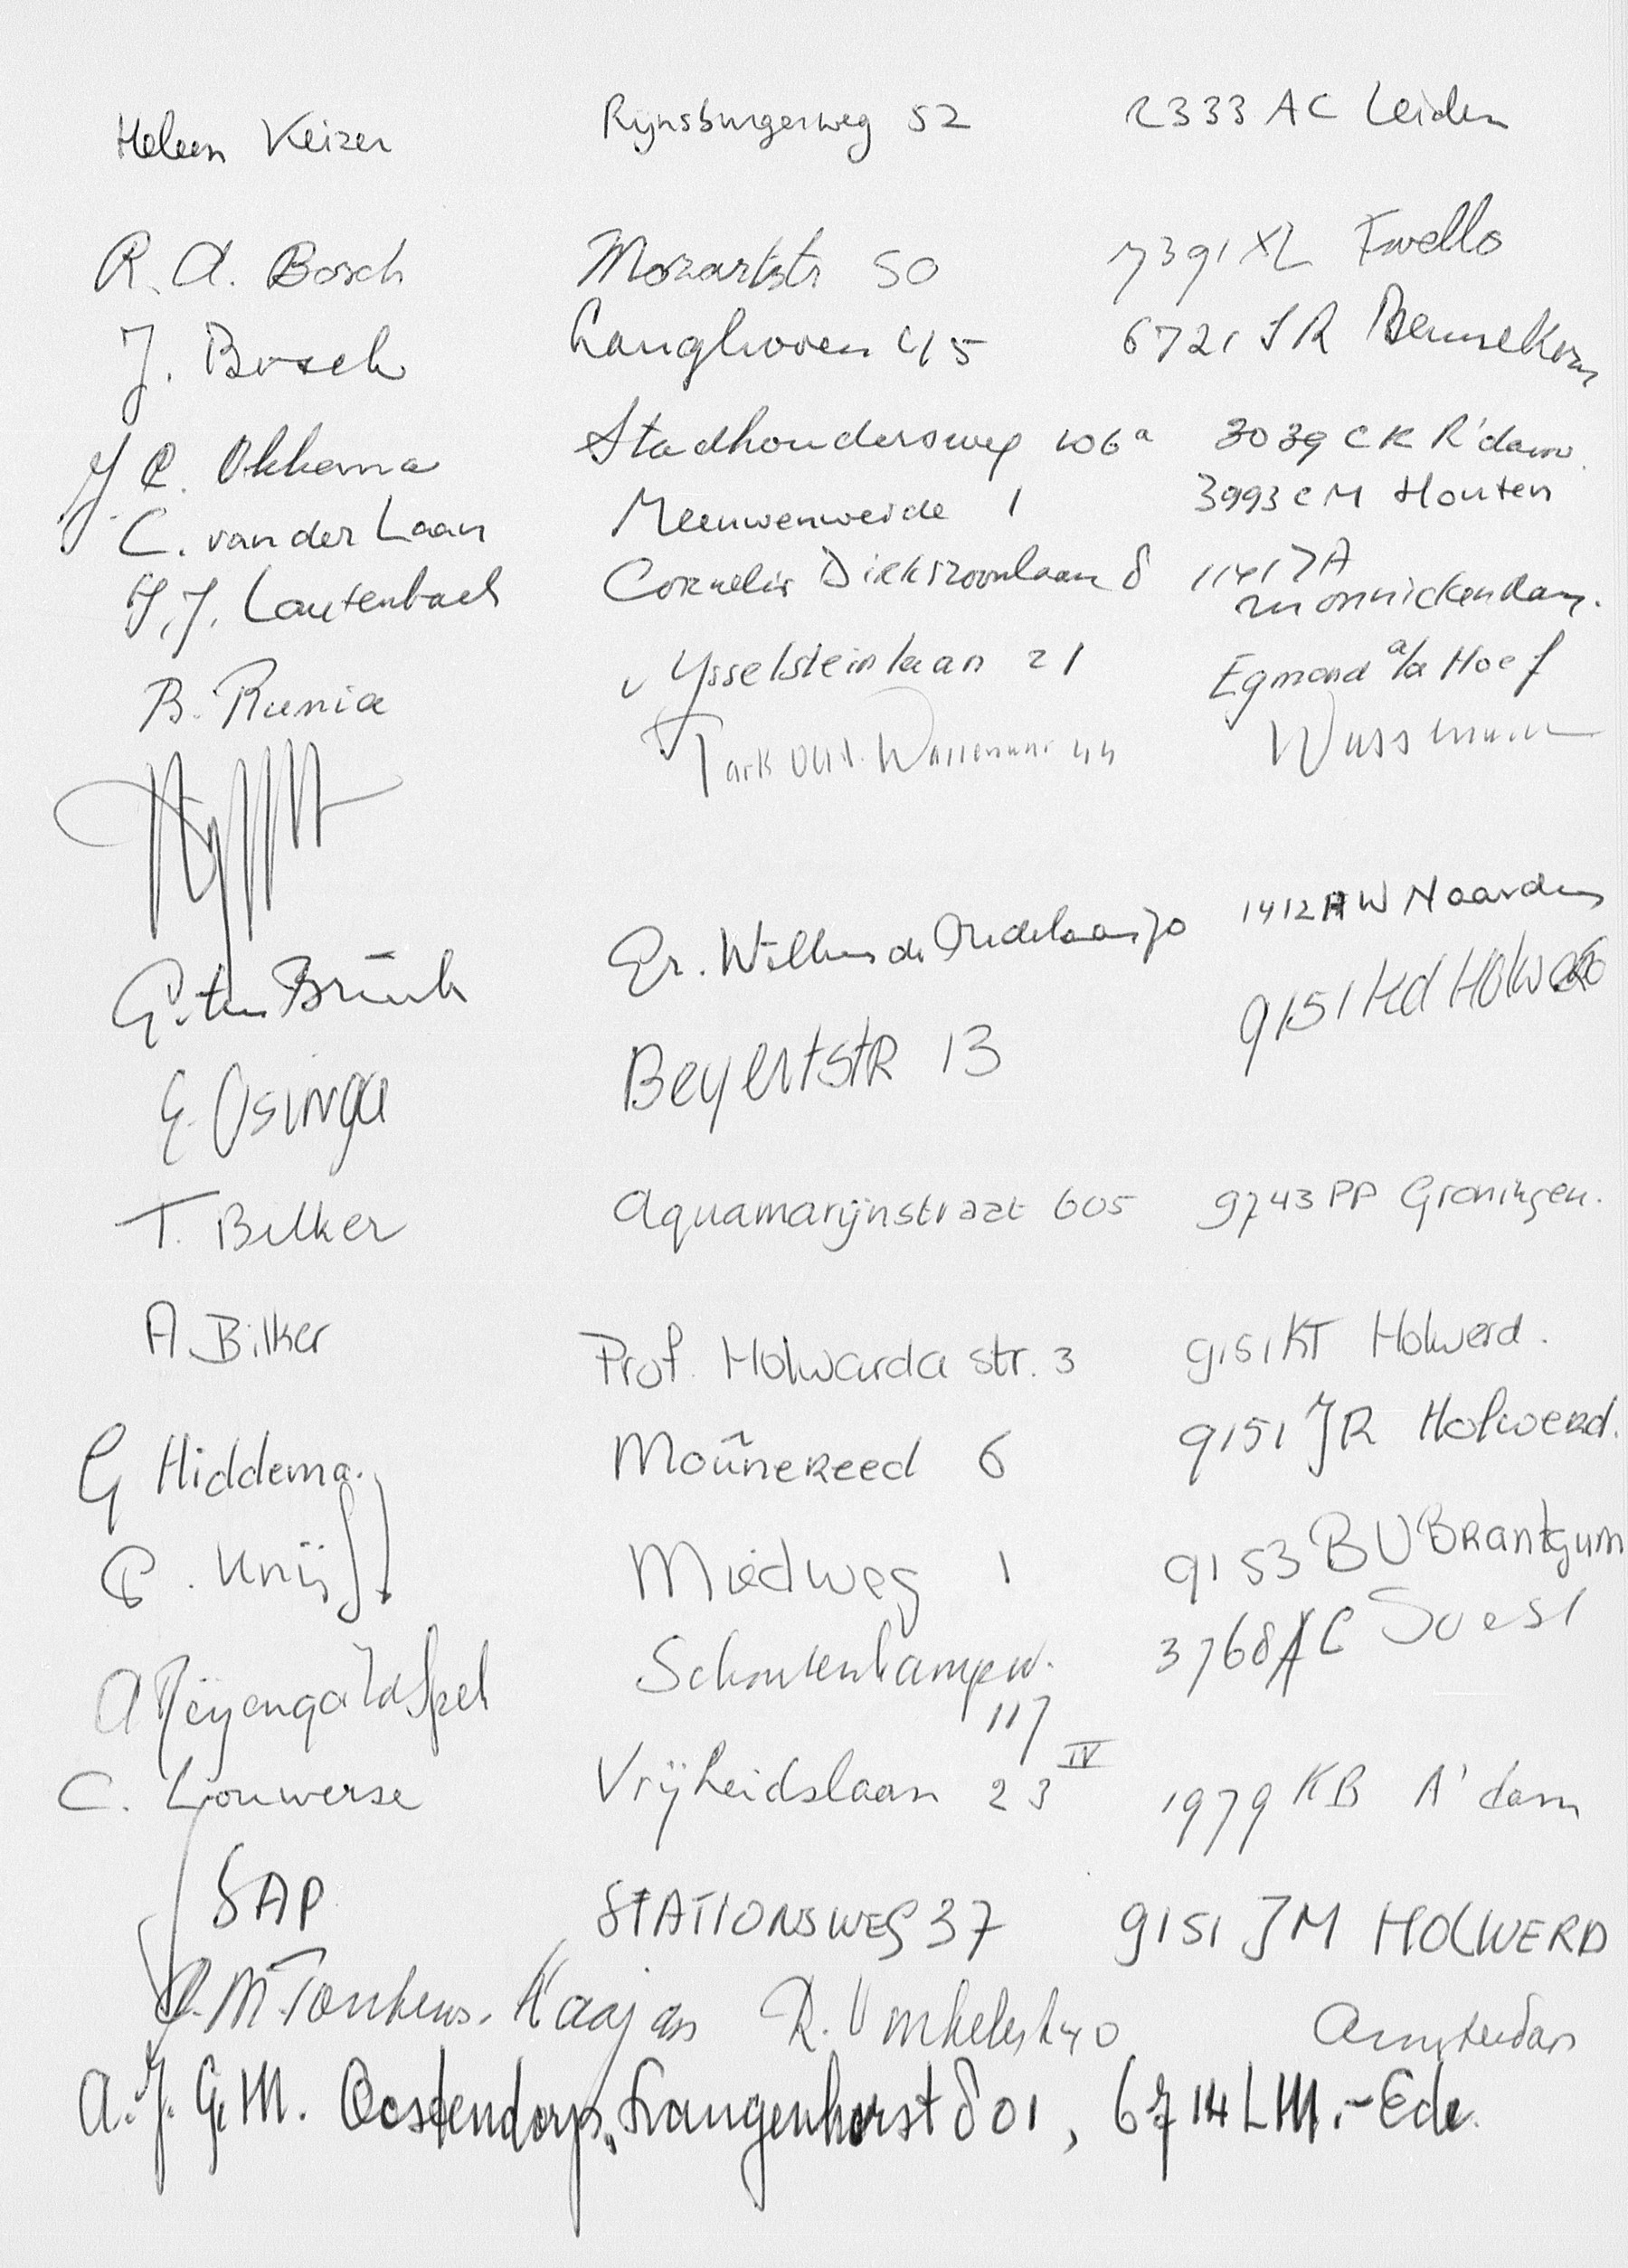 Heleen Keizer Rijnsburgerweg 52 2333 AC Leiden
R. A. Bosch Mozartstr 50 7391 XL Twello
J. Bosch Langhoven 45 6721 SR Bennekom
J. C. Okkema Stadhoudersweg 106a 3039 CK R'dam.
C. van der Laan Meeuwenweide 1 3993 CM Houten
J. J. Lautenbach Cornelis Dirkszoonlaan 8 1141 ZA Monnickendam.
B. Runia v Ysselsteinlaan 21 Egmond a/d Hoef
Park Oud. Wassenaar 44 Wassenaar
G. ten Brink Willem de 70 1412 AW Naarden
E. Osinga Beyertstr 13 9151 Kd Holwerd
T. Bilker Aquamarijnstraat 605 9743 PP Groningen.
A. Bilker Prof. Holwarda str. 3 9151 KT Holwerd.
G Hiddema. Moûnereed 6 9151 JR Holwerd.
P. Knijff Miedweg 1 9153 BU Brantgum
A Schoutenkampw. 117 3768 AC Soest
C. Louwerse Vrijheidslaan 23 IV 1979 KB A'dam
SAP STATIONSWEG 37 9151 JM HOLWERD
M. Tonkens. Haajan R. Vinkeleskade 40 Amsterdam
A. J. G. M. Oostendorp, Langenhorst 801, 6714 LM.-Ede.